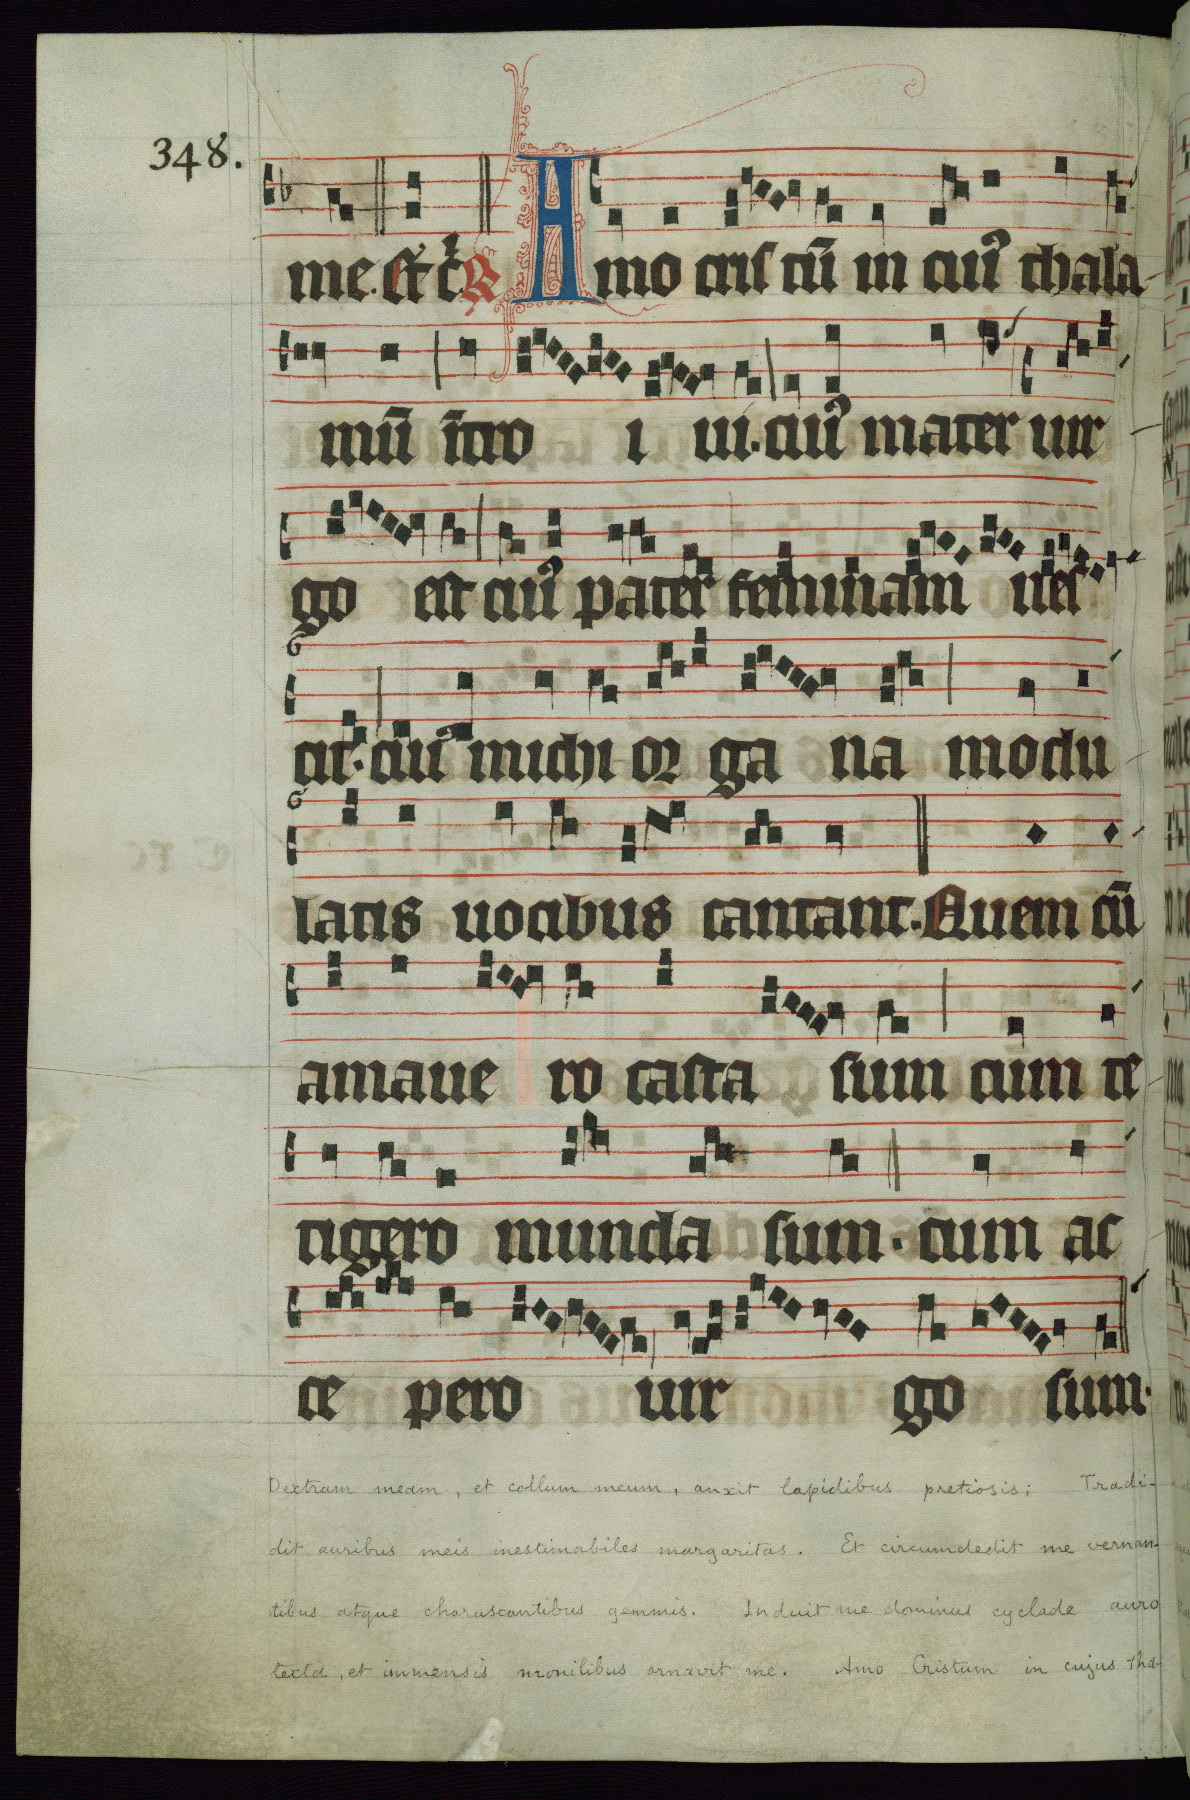 348.
me. Et c̄ ℟ Amo cris tū in cuiꝰ thala
mū ītro i ui. cuiꝰ mater uir
go est cuiꝰ pater feminam nes
cit. cuiꝰ michi or ga na modu
latis uocibus cantant. Quem cū
amaue ro casta sum cum te
tigero munda sum. cum ac
ce pero uir go sum.
Dextram meam, et collum meum, anxit lapidibus pretiosis; Tradi-
dit auribus meis inestimabiles margaritas. Et circumdedit me vernan-
tibus atque choruscantibus gemmis. Induit me dominus cyclade auro
texta, et immensis monilibus ornavit me. Amo Cristum in cujus tha-